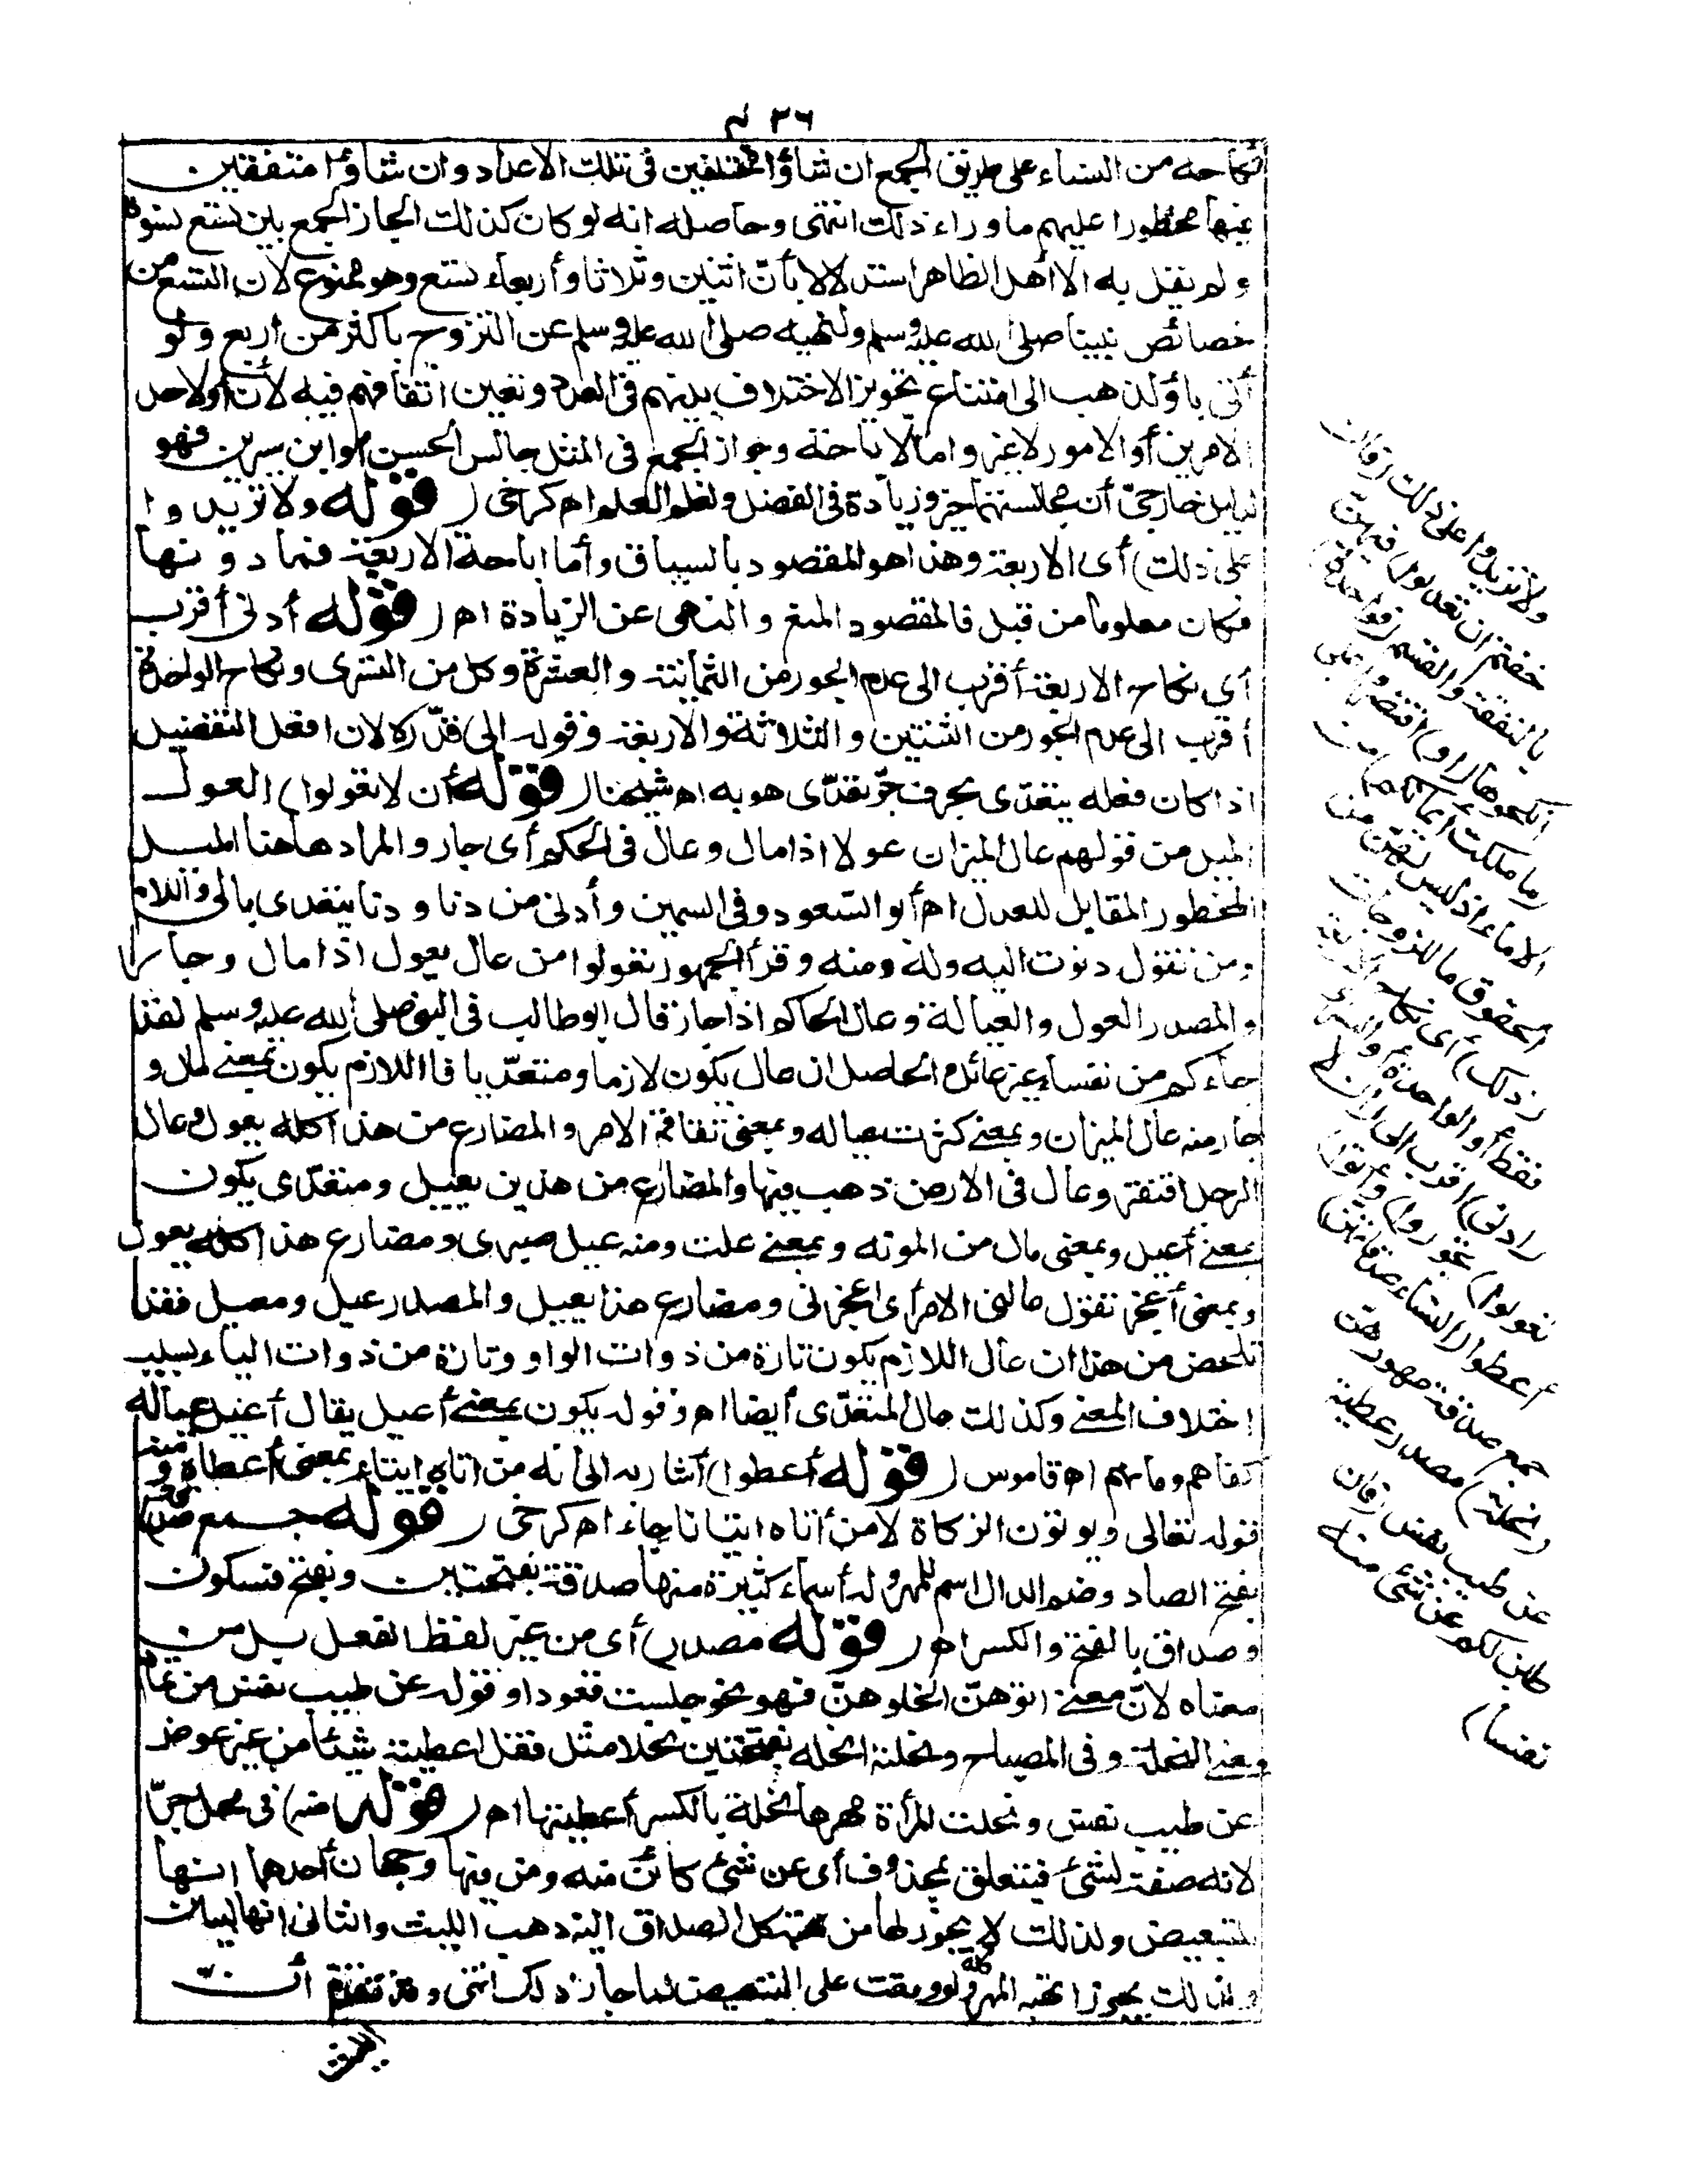 ٣٦
نكاحه من النساء على طريق الجمع ان شاؤا مختلفين فى تلك الاعداد وان شاؤا متفقين
فيها محظورا عليهم ما وراء ذلك انتهى وحاصله انه لو كان كذلك لجاز الجمع بين تسع نسوة
ولم يقل به الا اهل الظاهر استدلالا بأن اثنين وثلاثا وأربعا تسع وهو ممنوع لان التسع من
خصائص نبينا صلى الله عليه وسلم ولنهيه صلى الله عليه وسلم عن التزوج باكثر من أربع ولو
أتى بأو لذهب الى امتناع تجويز الاختلاف بينهم فى العدد وتعين اتفاقهم فيه لأن أو لاحد
الامرين أو الامور لا غير واما الاباحة وجواز الجمع فى المثل جالس الحسن أو ابن سيرين فهو
لدليل خارجىّ أن مجالستهما خير وزيادة فى الفضل ولعلو العلم اه كرخى (قوله ولا تزيدوا
على ذلك) أى الاربعة وهذا هو المقصود بالسياق وأما اباحة الاربعة فما دونها
فكان معلوما من قبل فالمقصود المنع والنهى عن الزيادة اه (قوله أدنى أقرب
أى نكاح الاربعة أقرب الى عدم الجور من الثمانية والعشرة وكل من التسرى ونكاح الواحدة
أقرب الى عدم الجور من الثنتين والثلاثة والاربعة وقوله الى قدّره لان افعل التفضيل
اذا كان فعله يتعدى بحرف جرّ تعدّى هو به اه شيخنا (قوله أن لا تعولوا) العول
الميل من قولهم عال الميزان عولا اذا مال وعال فى الحكم أى جار والمراد هاهنا الميل
المحظور المقابل للعدل اه أبو السعود وفى السمين وأدنى من دنا ودنا يتعدى بالى واللام
ومن تقول دنوت اليه وله ومنه وقرأ الجمهور تعولوا من عال يعول اذا مال وجار
والمصدر العول والعيالة وعال الحاكم اذا جار قال ابو طالب فى النبى صلى الله عليه وسلم لقد
جاءكم من نفسه غير عائل والحاصل ان عال يكون لازما ومتعدّيا فاللازم يكون بمعنى مال و
جار منه عال الميزان وبمعنى كثرت عياله وبمعنى تفاقم الامر والمضارع من هذا كله يعول وعال
الرجل افتقر وعال فى الارض ذهب فيها والمضارع من هذين يعيل ومتعدّى يكون
بمعنى أعيل وبمعنى مال من الموته وبمعنى علت ومنه عيل صبرى ومضارع هذا كله يعول
وبمعنى أعجز تقول عالنى الامر أى أعجزنى ومضارع هذا يعيل والمصدر عيل ومعيل فقد
تلخص من هذا ان عال اللازم يكون تارة من ذوات الواو وتارة من ذوات الياء بسبب
اختلاف المعنى وكذلك عال المتعدّى أيضا اه وقوله يكون بمعنى أعيل يقال أعيل عياله
كفاهم ومانهم اه قاموس (قوله أعطوا) أشار به الى أنه من اتاه ايتاء بمعنى أعطاه ومنه
قوله تعالى ويؤتون الزكاة لا من أتاه اتيانا جاء اه كرخى (قوله جمع صدقة)
بفتح الصاد وضم الدال اسم للمهر وله أسماء كثيرة منها صدقة بفتحتين وبفتح فسكون
وصداق بالفتح والكسر اه (قوله مصدر) أى من غير لفظ الفعل بل من
معناه لانّ معنى اتوهنّ انحلوهنّ فهو نحو جلست قعودا وقوله عن طيب نفس من تمام
معنى النحلة وفى المصباح ونحلته انحله بفتحتين نحلا مثل قفل اعطيته شيئا من غير عوض
عن طيب نفس ونحلت المرأة مهرها نحلة بالكسر أعطيتها اه (قوله منه) فى محل جرّ
لانه صفة لشئ فيتعلق بمحذوف أى عن شئ كائن منه ومن فيها وجهان أحدهما انها
للتبعيض ولذلك لا يجوز لها من تهبه كل الصداق اليه ذهب الليث والثانى انها للبيان
ولذلك يجوز ان تهبه المهر كله ولو وقعت على التبعيض لما جاز ذلك انتهى وقد تقدم أنّ
الليث
ولا تزيدوا على ذلك (فان
خفتم أن) لا (تعدلوا) فيهن
بالنفقة والقسم (فواحدة)
انكحوها (او) اقتصروا على
(ما ملكت أيمانكم) من
الاماء اذ ليس لهن من
الحقوق ما للزوجات
(ذلك) أى نكاح الاربعة
فقط أو الواحدة أو التسرى
(أدنى) اقرب الى (أن لا
تعولوا) تجوروا (وآتوا)
أعطوا (النساء صدقاتهن)
جمع صدقة مهورهن
(نحلة) مصدر عطية
عن طيب نفس (فان
طبن لكم عن شئ منه
نفسا)